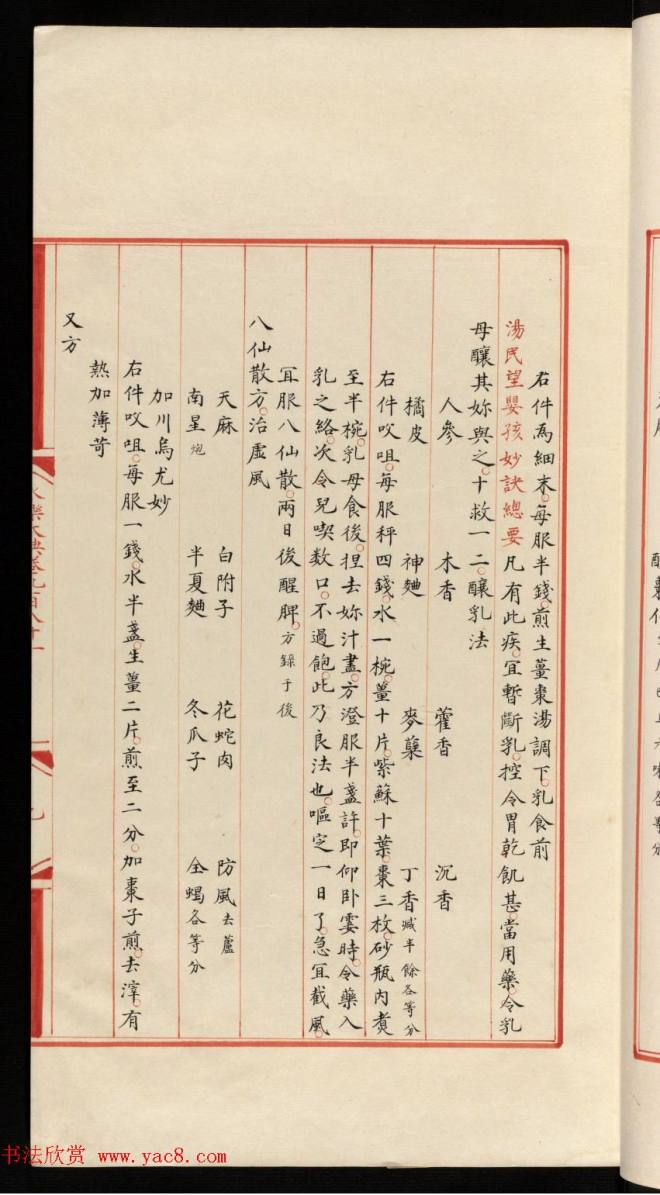 右件爲細末。每服半錢。煎生薑棗湯調下。乳食前
湯民望嬰孩妙訣總要凡有此疾。宜暫斷乳。控令胃乾飢甚。當用藥。令乳
母釀其妳與之。十救一二。釀乳法
人參 木香 藿香 沉香
橘皮 神麯 麥蘗 丁香減半餘各等分
右件㕮咀。每服秤四錢。水一椀。薑十片。紫蘇十葉。棗三枚。砂瓶內煮
至半椀。乳母食後。捏去妳汁盡。方澄服半盞許。即仰卧霎時。令藥入
乳之絡。次令兒喫数口。不過飽。此乃良法也。嘔定一日了。急宜截風。
宜服八仙散。兩日後醒脾。方錄于後
八仙散方。治虛風
天麻 白附子 花蛇肉 防風去蘆
南星炮 半夏麯 冬瓜子 全蝎各等分
加川烏尤妙
右件㕮咀。每服一錢。水半盞。生薑二片。煎至二分。加棗子煎。去滓。有
熱加薄苛
又方
永樂大典卷九百八十一
九
書法欣賞 www.yac8.com